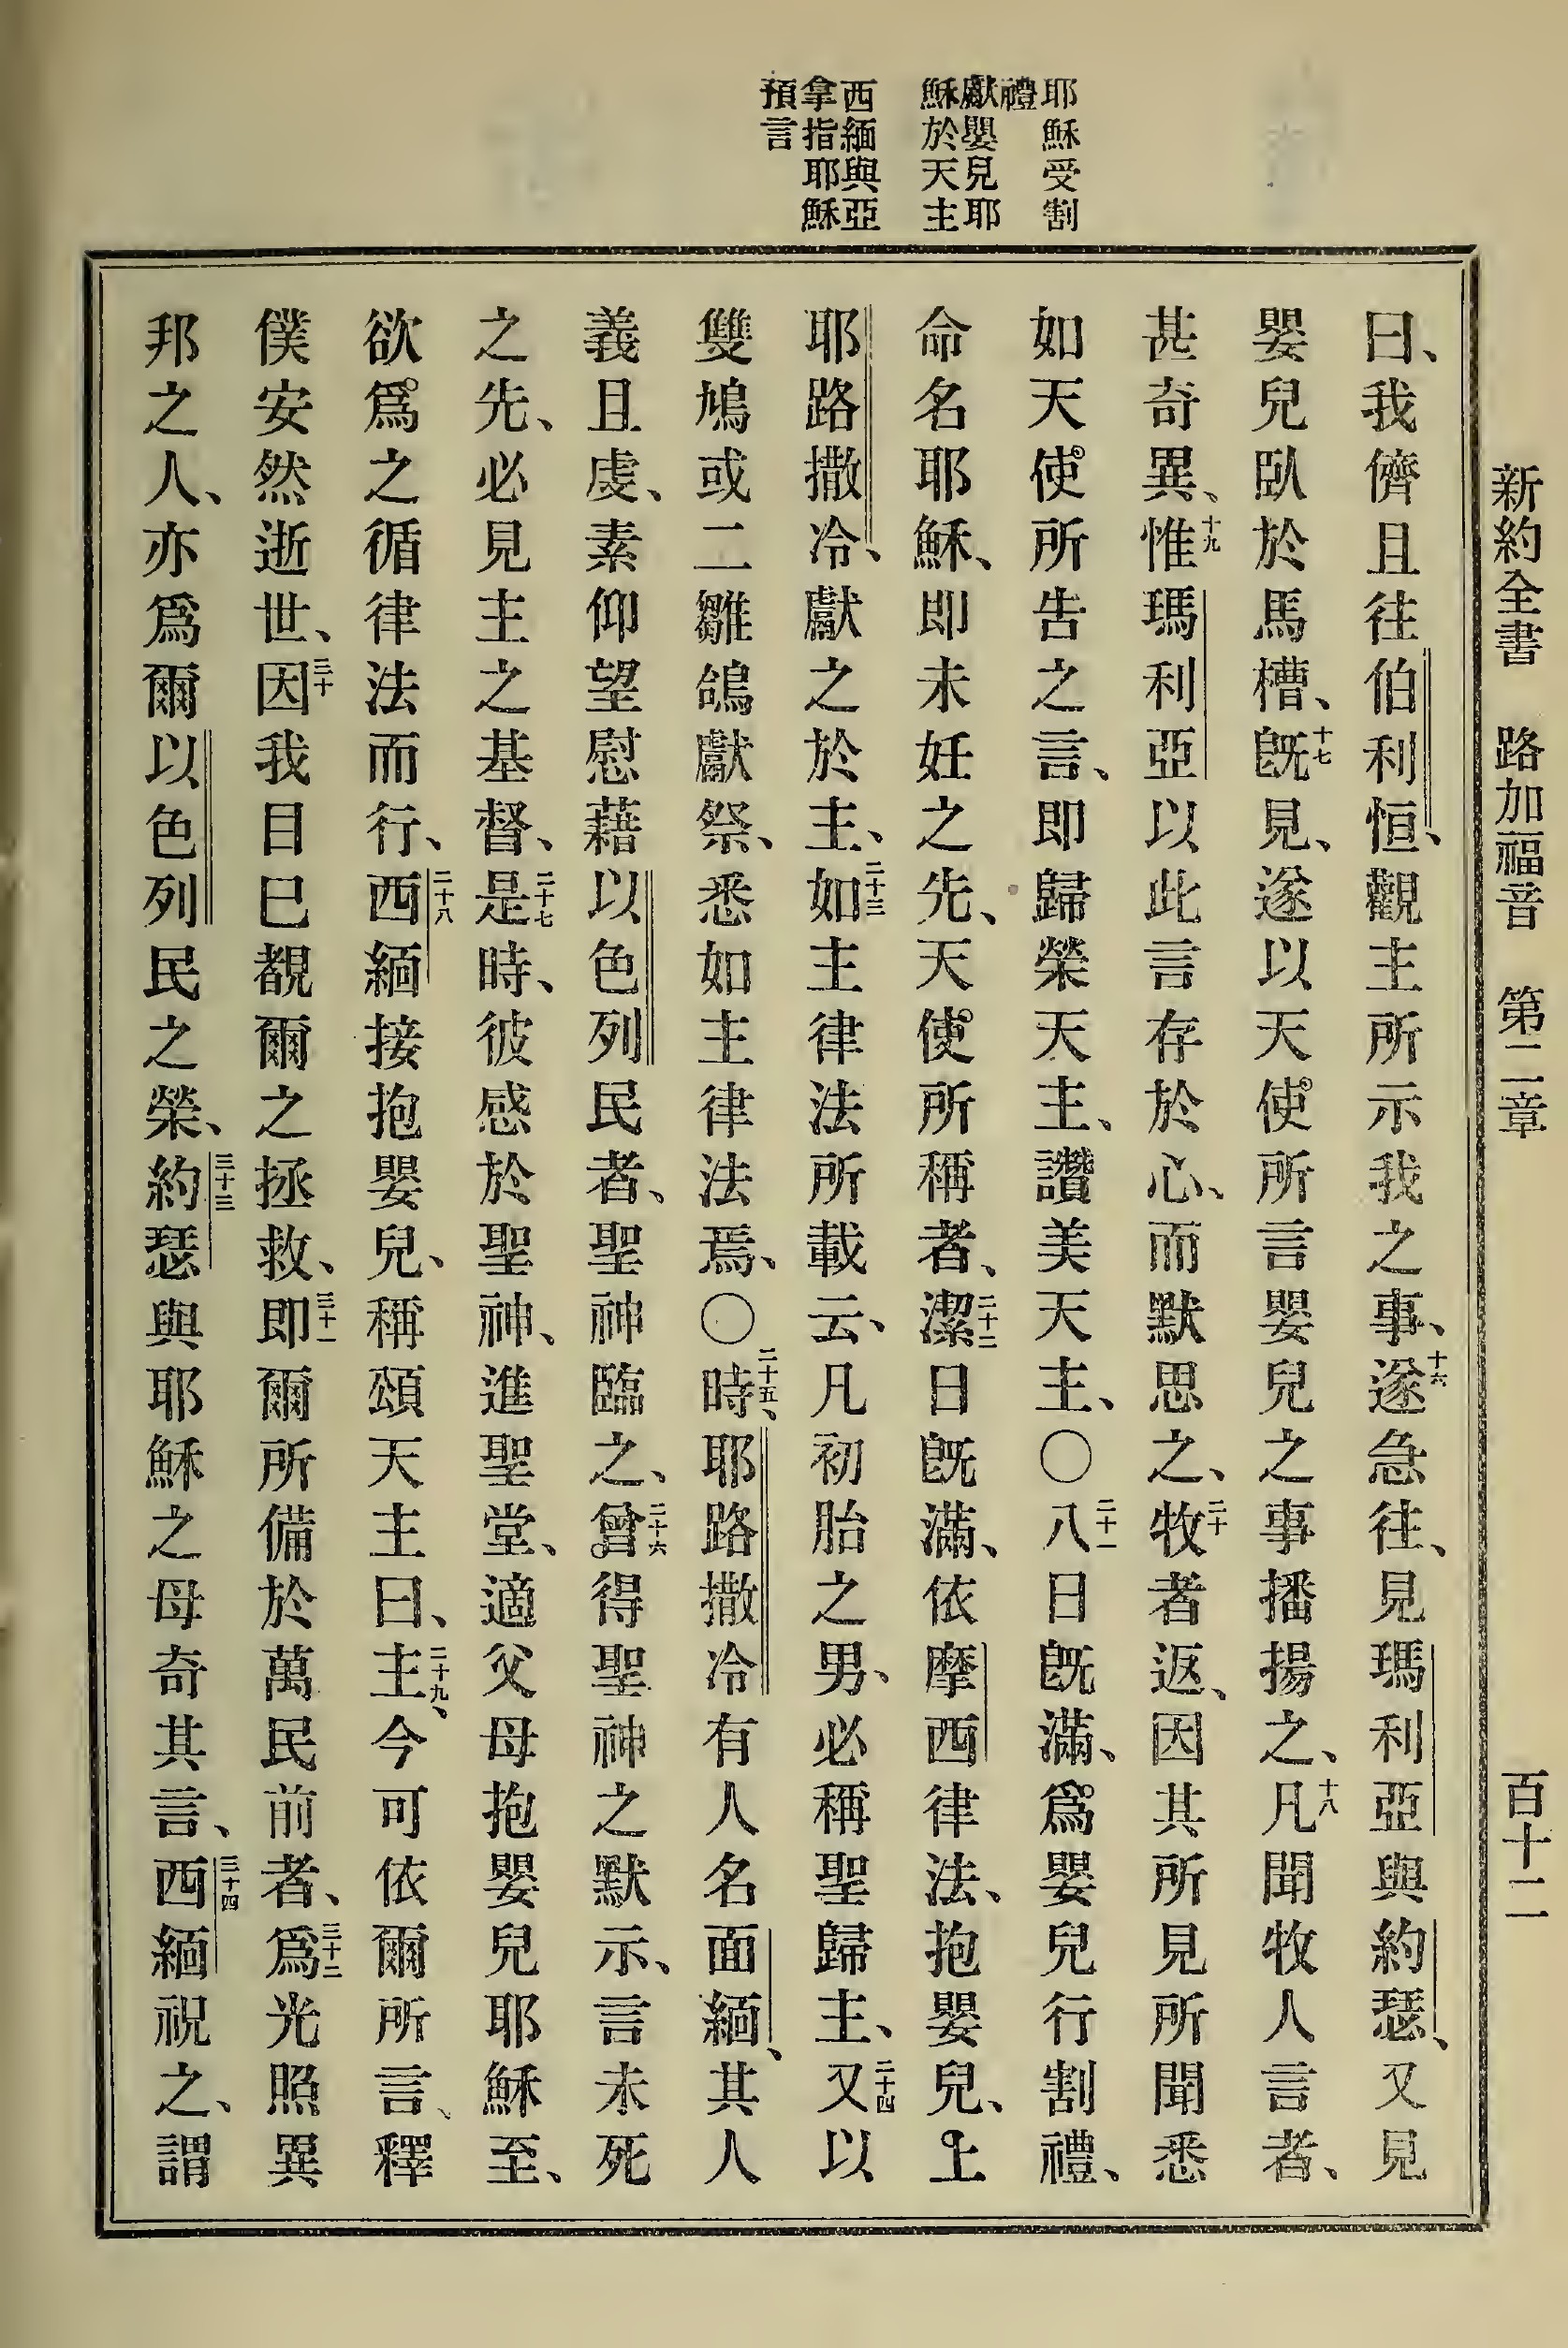 新約全書 路加福音 第二章 百十二
耶穌受割
禮
獻嬰兒耶
穌於天主
西緬與亞
拿指耶穌
預言
曰、我儕且往伯利恒、觀主所示我之事、十六遂急往、見瑪利亞與約瑟、又見
嬰兒臥於馬槽、十七旣見、遂以天使所言嬰兒之事播揚之、十八凡聞牧人言者、
甚奇異、十九惟瑪利亞以此言存於心、而默思之、二十牧者返、因其所見所聞悉
如天使所告之言、即歸榮天主、讚美天主、〇二十一八日旣滿、爲嬰兒行割禮、
命名耶穌、即未妊之先、天使所稱者、二十二潔日旣滿、依摩西律法、抱嬰兒、上
耶路撒冷、獻之於主、二十三如主律法所載云、凡初胎之男、必稱聖歸主、二十四又以
雙鳩或二雛鴿獻祭、悉如主律法焉、〇二十五時、耶路撒冷有人名面緬、其人
義且虔、素仰望慰藉以色列民者、聖神臨之、二十六曾得聖神之默示、言未死
之先、必見主之基督、二十七是時、彼感於聖神、進聖堂、適父母抱嬰兒耶穌至、
欲爲之循律法而行、二十八西緬接抱嬰兒、稱頌天主曰、二十九主、今可依爾所言、釋
僕安然逝世、三十因我目已覩爾之拯救、三十一即爾所備於萬民前者、三十二爲光照異
邦之人、亦爲爾以色列民之榮、三十三約瑟與耶穌之母奇其言、三十四西緬祝之、謂